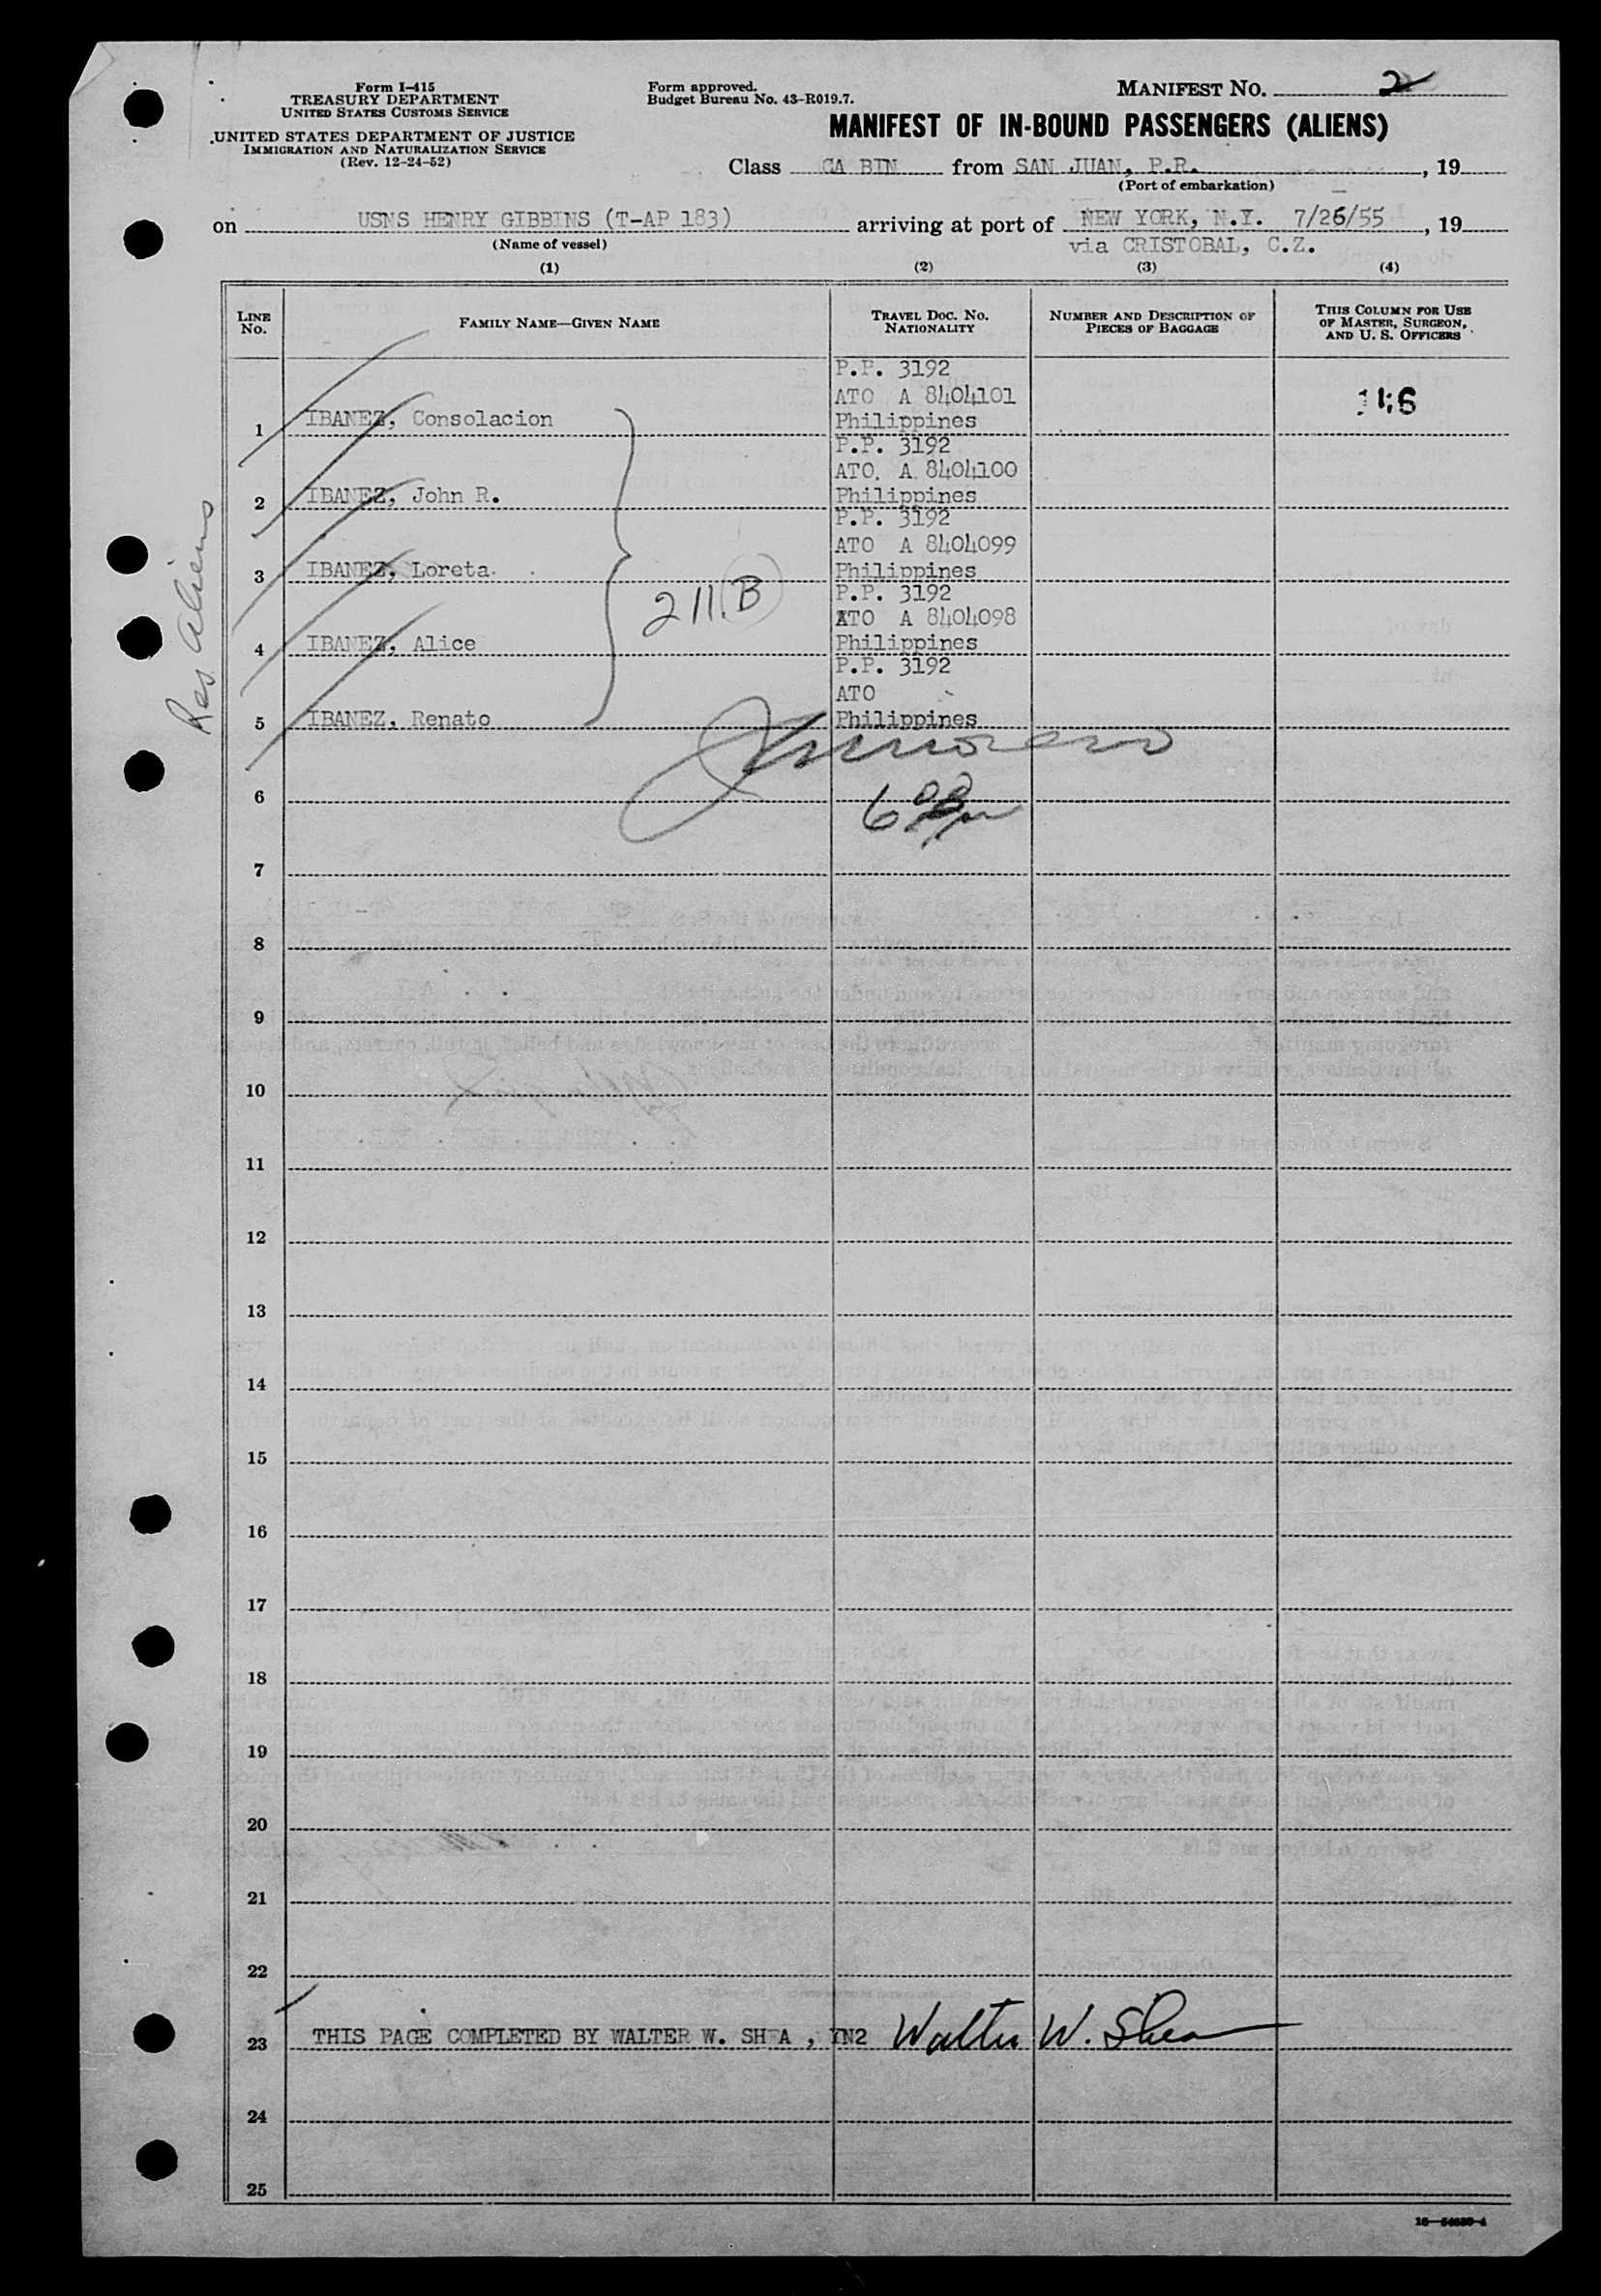 Form I-415
TREASURY DEPARTMENT
UNITED STATES CUSTOMS SERVICE
UNITED STATES DEPARTMENT OF JUSTICE
IMMIGRATION AND NATURALIZATION SERVICE
(Rev. 12-24-52)
Form approved.
Budget Bureau No. 43-R019.7.
MANIFEST NO. 2
MANIFEST OF IN-BOUND PASSENGERS (ALIENS)
Class CA BIN from SAN JUAN, P.R., 19
(Port of embarkation)
on USNS HENRY GIBBINS (T-AP 183) arriving at port of NEW YORK, N.Y. 7/26/55, 19
(Name of vessel) via CRISTOBAL, C.Z.
(1) (2) (3) (4)
LINE No. FAMILY NAME—GIVEN NAME TRAVEL DOC. NO. NATIONALITY NUMBER AND DESCRIPTION OF PIECES OF BAGGAGE THIS COLUMN FOR USE OF MASTER, SURGEON, AND U. S. OFFICERS
P.P. 3192
ATO A 8404101 146
1 IBANEZ, Consolacion Philippines
P.P. 3192
ATO. A 8404100
2 IBANEZ, John R. Philippines
P.P. 3192
ATO A 8404099
3 IBANEZ, Loreta Philippines
211.B
P.P. 3192
ATO A 8404098
4 IBANEZ, Alice Philippines
P.P. 3192
ATO
5 IBANEZ, Renato Philippines
Res Aliens
6
7
8
9
10
11
12
13
14
15
16
17
18
19
20
21
22
23 THIS PAGE COMPLETED BY WALTER W. SHEA , YN2 Walter W. Shea
24
25